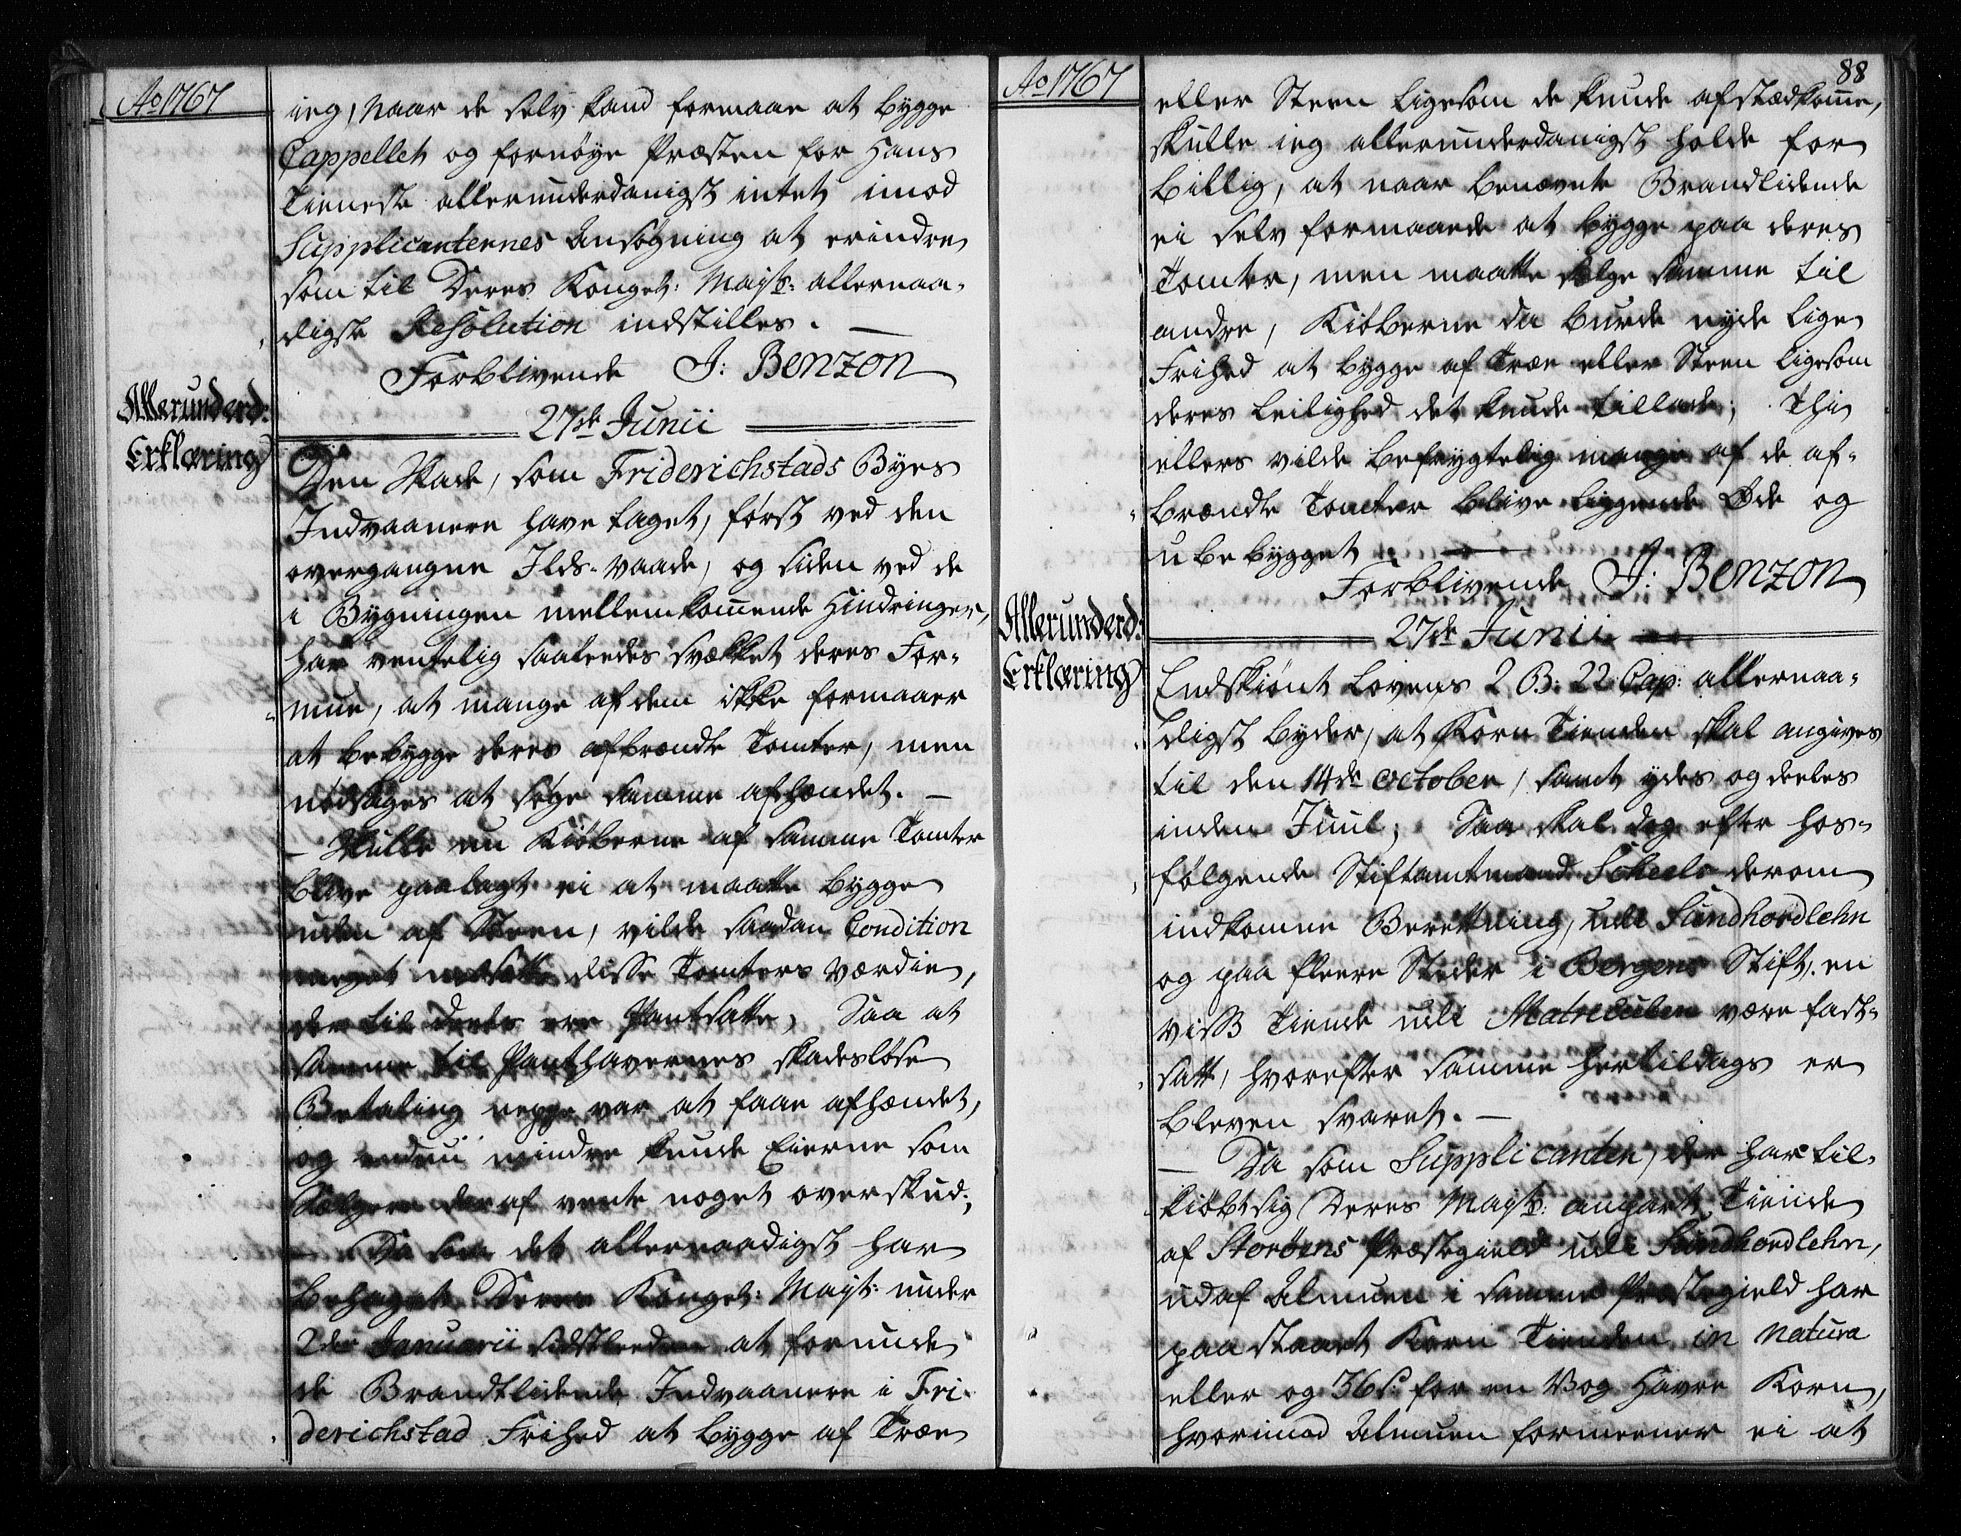 Ao 1767
ieg, naar de selv kand formaae at bygge
Cappellet og fornøye Præsten for Hans
Tieneste allerunderdanigst intet imod
Supplicanternes Ansøgning at erindre
som til Deres Konget: Mayts: allernaa-
digste Resolution indstilles. —
Forblivende J: Benzon
Allerunderd:
Erklæring
27de Junii
Den Skade, som Friderichstads Byes
Indvaanere have taget, først ved den
overgangne Ilds-vaade, og siden ved de
i Bygningen mellemkommende Hindringer,
har ventelig saaledes svækket deres For-
mue, at mange af dem ikke formaaer
at bebygge deres afbrændte Tomter, men
nødsages at søge samme afhændet. —
— Skulle nu Kiøberne af samme Tomter
blive paalagt ei at maatte bygge
uden af Steen, vilde saadan Condition
meget nedsætte disse Tomters Værdie,
der til deels ere Pantsatte, Saa at
samme til Panthavernes skadesløse
Betaling neppe var at faae afhændet,
og endnu mindre kunde Eierne som
Sælgere deraf vente noget overskud;
— Da som det allernaadigst har
behaget Deres Konget: Mayt: under
2den Januarii sidstleeden at forunde
de Brandtlidende Indvaanere i Fri-
derichstad Frihed at bygge af Træe
Ao 1767
88
eller Steen ligesom de kunde afstædkomme,
skulle ieg allerunderdanigst holde for
billig, at naar benævnte Brandlidende
ei selv formaaede at bygge paa deres
Tomter, men maatte sælge samme til
andre, Kiøberne da burde nyde lige
Frihed at bygge af Træe eller Steen ligesom
deres leilighed det kunde tillade; Thi
ellers vilde befrygtelig mange af de af-
brændte Tomter blive liggende Øde og
ubebygget. —
Forblivende J: Benzon
Allerunderd:
Erklæring
27de Junii
Endskiønt Lovens 2 B: 22 Cap: allernaa-
digst byder, at Korn Tienden skal angives
til den 14de October, samt ydes og deeles
inden Juul; Saa skal dog efter hos-
følgende Stiftamtmand Scheels derom
indkomne Beretning, udi Sundhordlehn
og paa fleere Steder i Bergens Stift, en
viss Tiende udi Matriculen være fast-
satt, hvorefter samme hertildags er
bleven svaret. —
— Da som Supplicanten, der har til-
kiøbt sig Deres Mayts: anpart Tiende
af Storøens Præstegield udi Sundhordlehn,
udaf Almuen i samme Præstegield har
paastaaet Korn Tienden in natura
eller og 36 s: for en Vog Havre Korn,
hvorimod Almuen formeener ei at